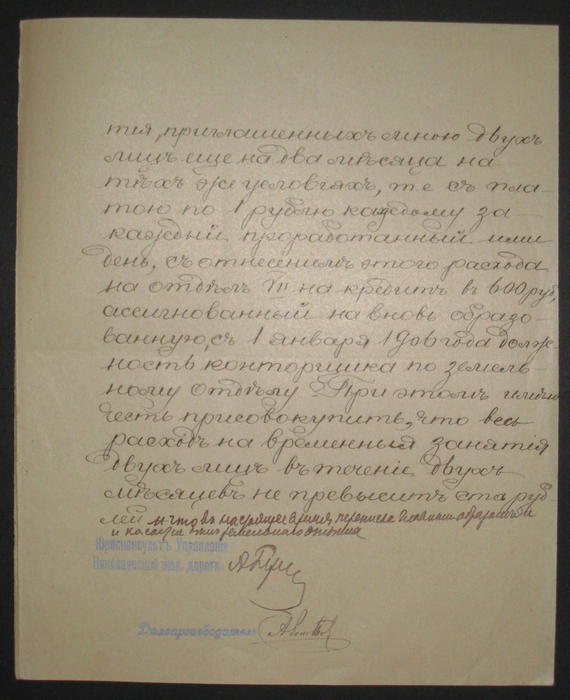 тія, приглашенныхъ мною двухъ
лицъ еще на два мѣсяца на
тѣхъ же условіяхъ, т.е. съ пла-
тою по 1 рублю каждому за
каждый проработанный ими
день, съ отнесеніемъ этого расхода
на отдѣлъ III на кредитъ въ 600 руб,
ассигнованный на вновь образо-
ванную, съ 1 января 1906 года долж-
ность конторщика по земель-
ному отдѣлу. При этомъ имѣю
честь присовокупить, что весь
расходъ на временныя занятія
двухъ лицъ въ теченіе двухъ
мѣсяцевъ не превыситъ ста руб
лей и что до настоящее время переписка главнымъ образомъ
и касается
Юрисконсультъ Управленія
Николаевской жел. дороги
Дѣлопроизводитель